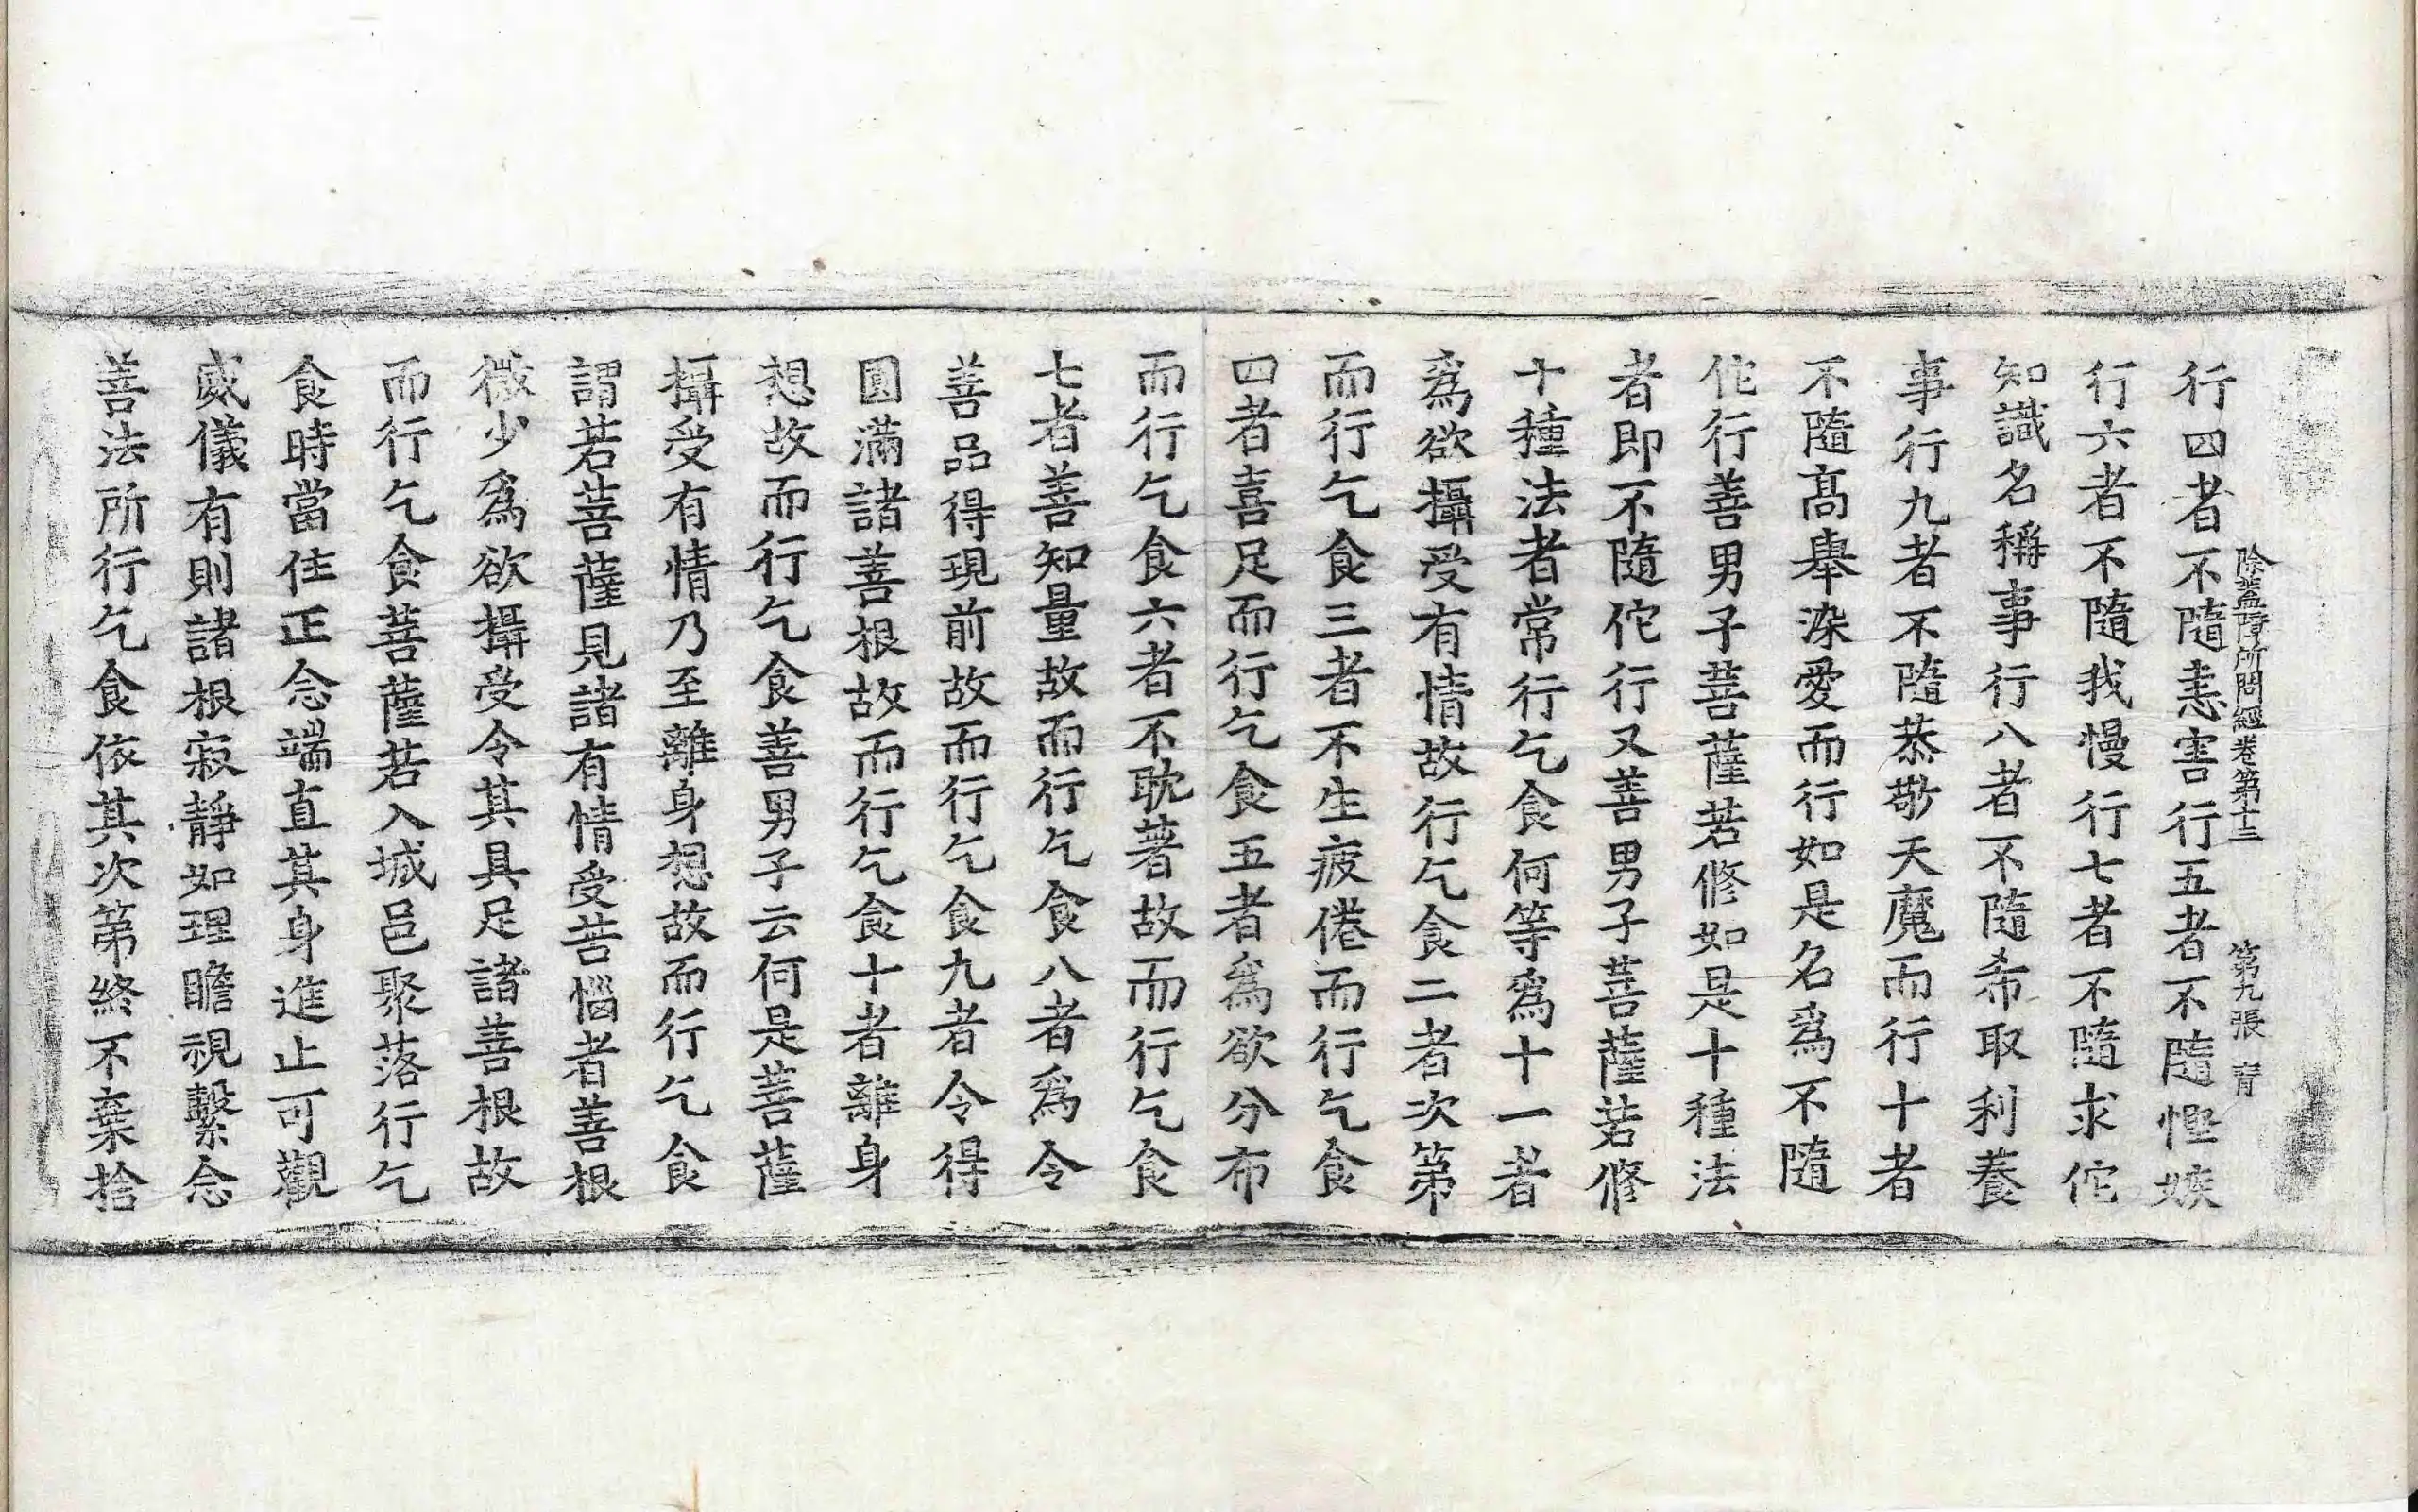 除蓋障所問經卷第十三 第九張 㝈
行四者不隨恚害行五者不隨慳嫉
行六者不隨我慢行七者不隨求佗
知識名稱事行八者不隨希取利養
事行九者不隨恭敬天魔而行十者
不隨髙舉染愛而行如是名爲不隨
佗行善男子菩薩若修如是十種法
者即不隨佗行又善男子菩薩若修
十種法者常行乞食何等爲十一者
爲欲攝受有情故行乞食二者次第
而行乞食三者不生疲倦而行乞食
四者喜足而行乞食五者爲欲分布
而行乞食六者不耽著故而行乞食
七者善知量故而行乞食八者爲令
善品得現前故而行乞食九者令得
圓滿諸善根故而行乞食十者離身
想故而行乞食善男子云何是菩薩
攝受有情乃至離身想故而行乞食
謂若菩薩見諸有情受苦惱者善根
微少爲欲攝受令其具足諸善根故
而行乞食菩薩若入城邑聚落行乞
食時當住正念端直其身進止可觀
威儀有則諸根寂靜如理瞻視繫念
善法所行乞食依其次第終不棄捨